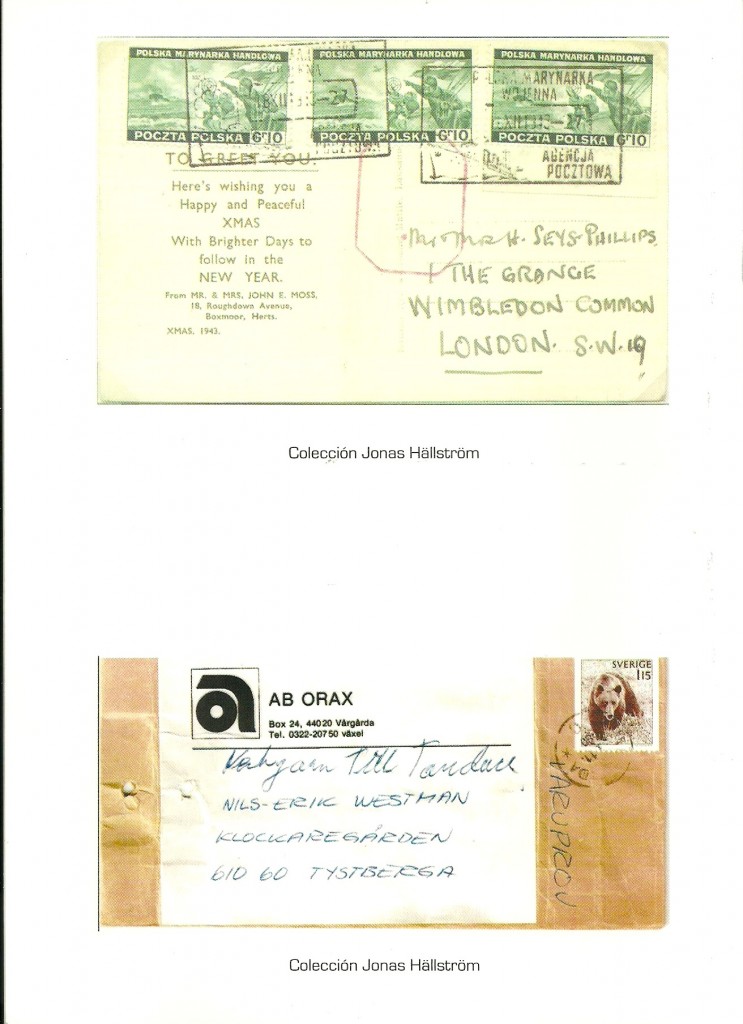 POLSKA MARYNARKA HANDLOWA
POCZTA POLSKA Gr10
POLSKA MARYNARKA HANDLOWA
POCZTA POLSKA Gr10
POLSKA MARYNARKA HANDLOWA
POCZTA POLSKA Gr10
POCZTOWA
POLSKA MARYNARKA
WOJENNA
AGENCJA
POCZTOWA
TO GREET YOU.
Here's wishing you a
Happy and Peaceful
XMAS
With Brighter Days to
follow in the
NEW YEAR.
From MR. & MRS. JOHN E. MOSS,
18, Roughdown Avenue,
Boxmoor, Herts.
XMAS, 1943.
H. SEYS-PHILLIPS.
1 THE GRANGE
WIMBLEDON COMMON
LONDON. S.W.19
Colección Jonas Hällström
AB ORAX
Box 24, 44020 Vårgårda
Tel. 0322-20750 växel
SVERIGE
115
Till
NILS-ERIK WESTMAN
KLOCKAREGÅRDEN
610 60 TYSTBERGA
VARUPROV
Colección Jonas Hällström